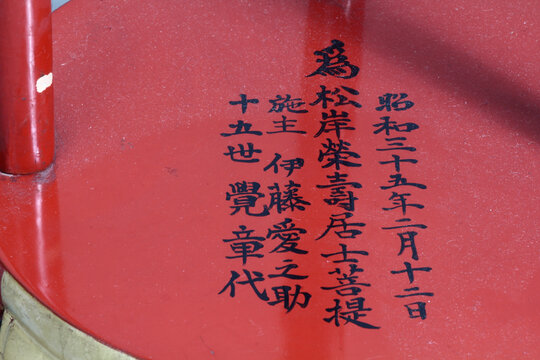 昭和三十五年二月十二日
為松岸榮壽居士菩提
施主 伊藤愛之助
十五世 覺章代